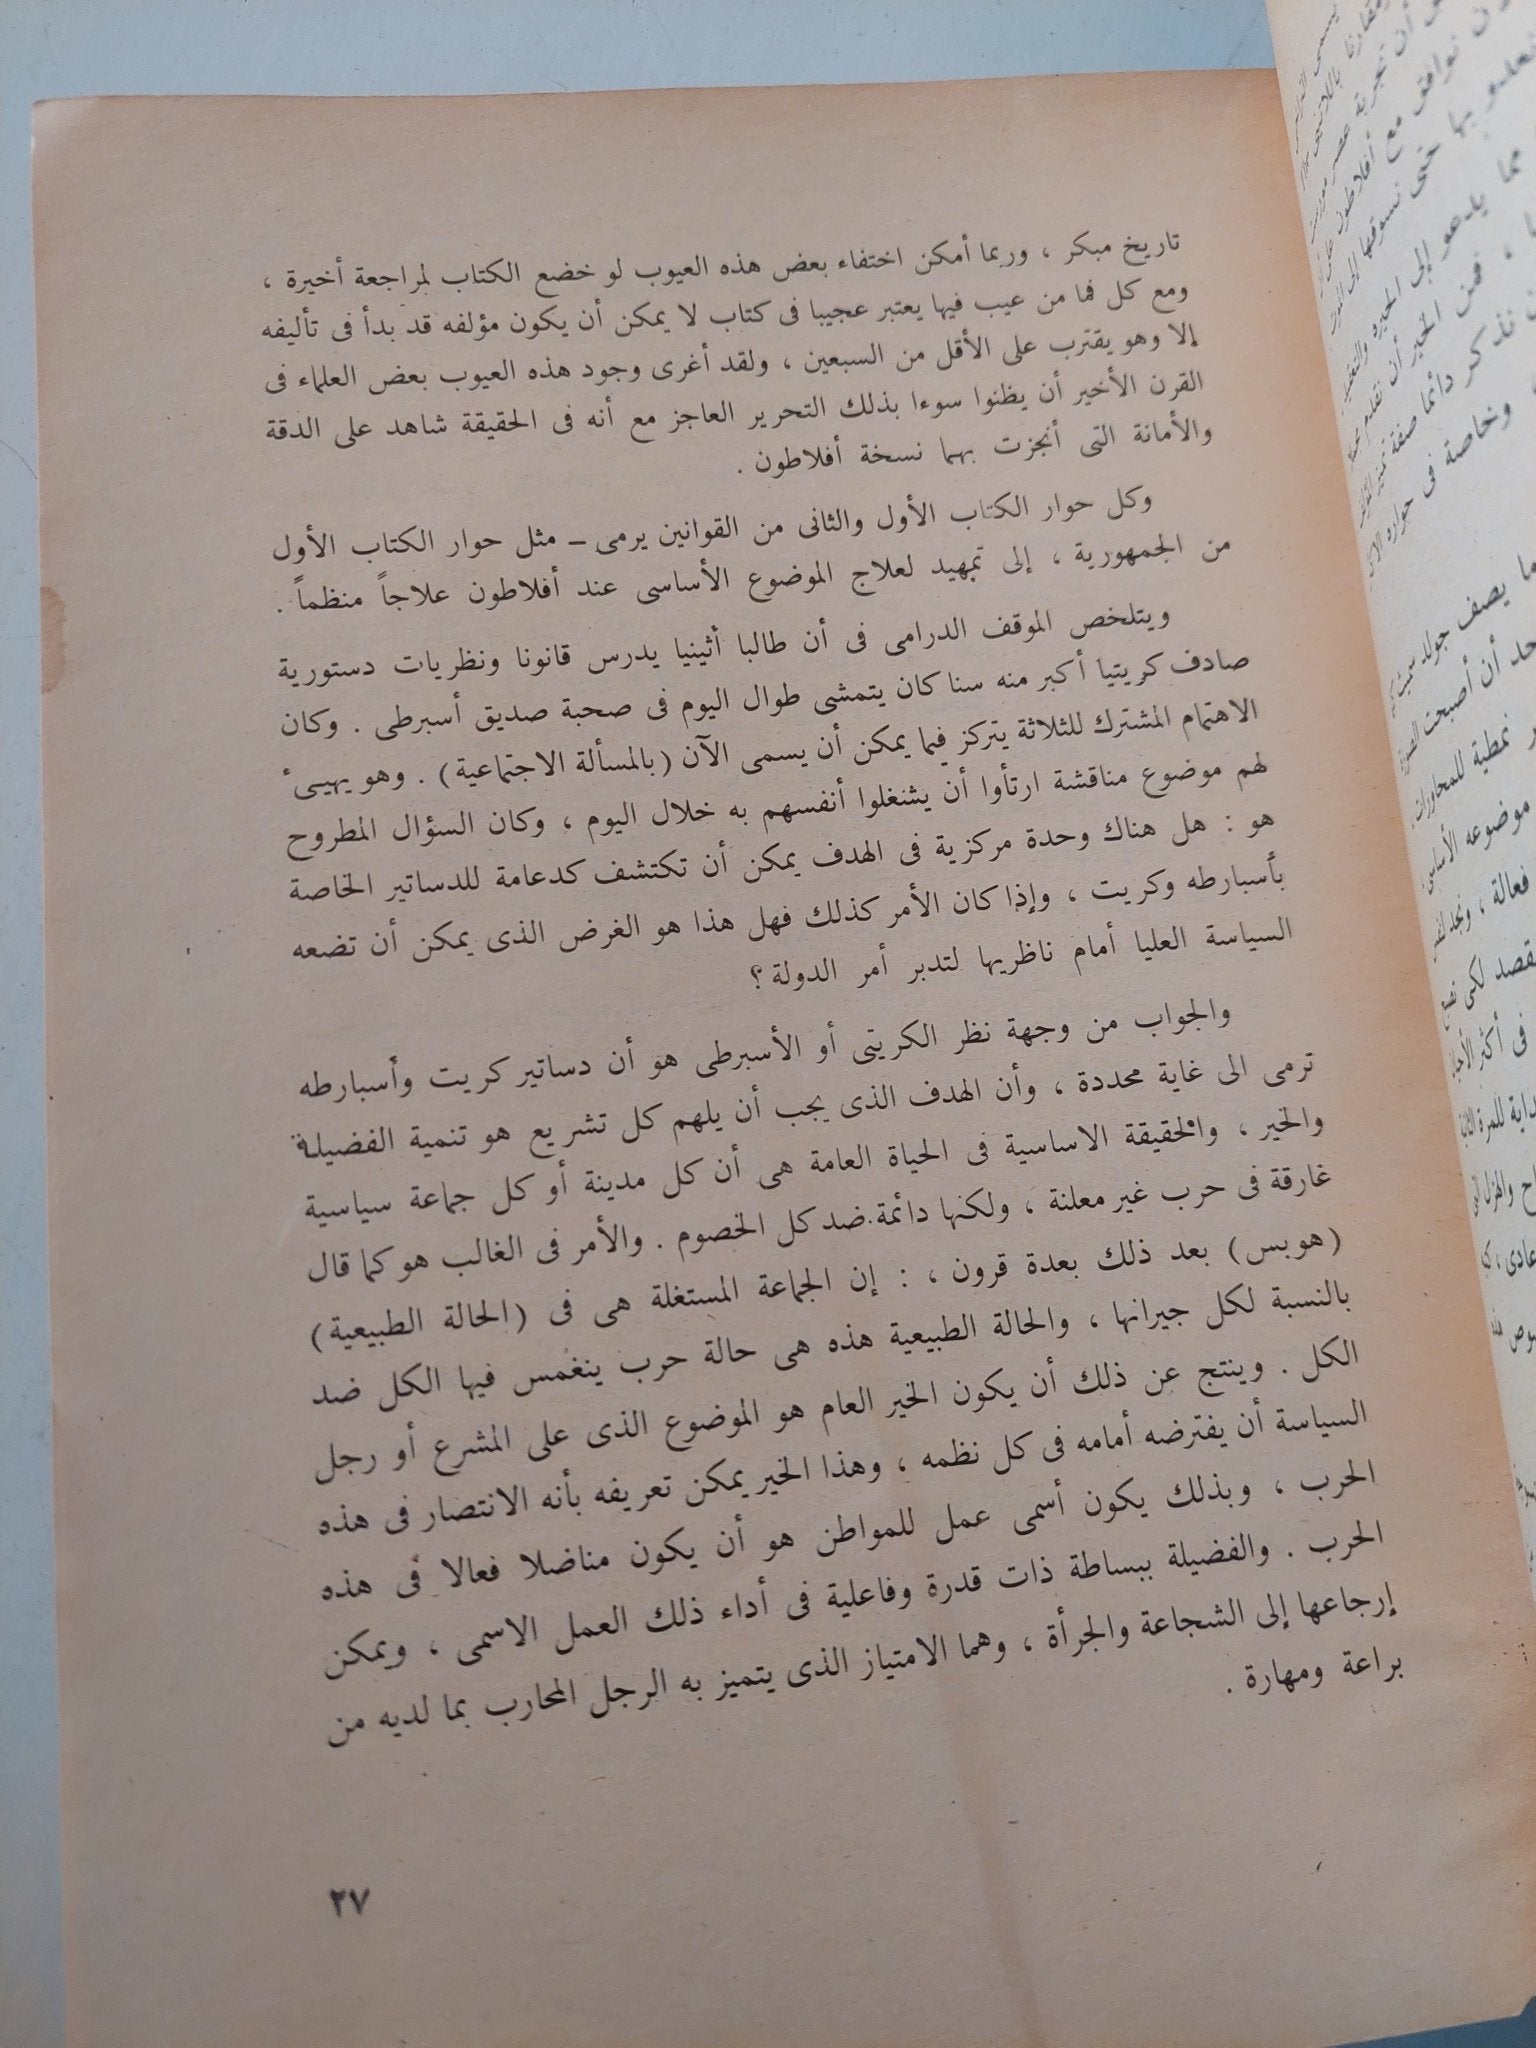 تاريخ مبكر ، وربما أمكن اختفاء بعض هذه العيوب لو خضع الكتاب لمراجعة أخيرة ،
ومع كل فما من عيب فيها يعتبر عجيبا فى كتاب لا يمكن أن يكون مؤلفه قد بدأ فى تأليفه
إلا وهو يقترب على الأقل من السبعين ، ولقد أغرى وجود هذه العيوب بعض العلماء فى
القرن الأخير أن يظنوا سوءا بذلك التحرير العاجز مع أنه فى الحقيقة شاهد على الدقة
والأمانة التى أنجزت بهما نسخة أفلاطون .
وكل حوار الكتاب الأول والثانى من القوانين يرمى – مثل حوار الكتاب الأول
من الجمهورية ، إلى تمهيد لعلاج الموضوع الأساسى عند أفلاطون علاجاً منظماً .
ويتلخص الموقف الدرامى فى أن طالبا أثينيا يدرس قانونا ونظريات دستورية
صادف كريتيا أكبر منه سنا كان يتمشى طوال اليوم فى صحبة صديق أسبرطى . وكان
الاهتمام المشترك للثلاثة يتركز فيما يمكن أن يسمى الآن (بالمسألة الاجتماعية) . وهو يهيىء
لهم موضوع مناقشة ارتأوا أن يشغلوا أنفسهم به خلال اليوم ، وكان السؤال المطروح
هو : هل هناك وحدة مركزية فى الهدف يمكن أن تكتشف كدعامة للدساتير الخاصة
بأسبارطه وكريت ، وإذا كان الأمر كذلك فهل هذا هو الغرض الذى يمكن أن تضعه
السياسة العليا أمام ناظريها لتدبر أمر الدولة ؟
والجواب من وجهة نظر الكريتى أو الأسبرطى هو أن دساتير كريت وأسبارطه
ترمى الى غاية محددة ، وأن الهدف الذى يجب أن يلهم كل تشريع هو تنمية الفضيلة
والخير ، والحقيقة الاساسية فى الحياة العامة هى أن كل مدينة أو كل جماعة سياسية
غارقة فى حرب غير معلنة ، ولكنها دائمة ضد كل الخصوم . والأمر فى الغالب هو كما قال
(هوبس) بعد ذلك بعدة قرون ، : إن الجماعة المستغلة هى فى (الحالة الطبيعية)
بالنسبة لكل جيرانها ، والحالة الطبيعية هذه هى حالة حرب ينغمس فيها الكل ضد
الكل . وينتج عن ذلك أن يكون الخير العام هو الموضوع الذى على المشرع أو رجل
السياسة أن يفترضه أمامه فى كل نظمه ، وهذا الخير يمكن تعريفه بأنه الانتصار فى هذه
الحرب ، وبذلك يكون أسمى عمل للمواطن هو أن يكون مناضلا فعالا فى هذه
الحرب . والفضيلة ببساطة ذات قدرة وفاعلية فى أداء ذلك العمل الاسمى ، ويمكن
إرجاعها إلى الشجاعة والجرأة ، وهما الامتياز الذى يتميز به الرجل المحارب بما لديه من
براعة ومهارة .
٢٧